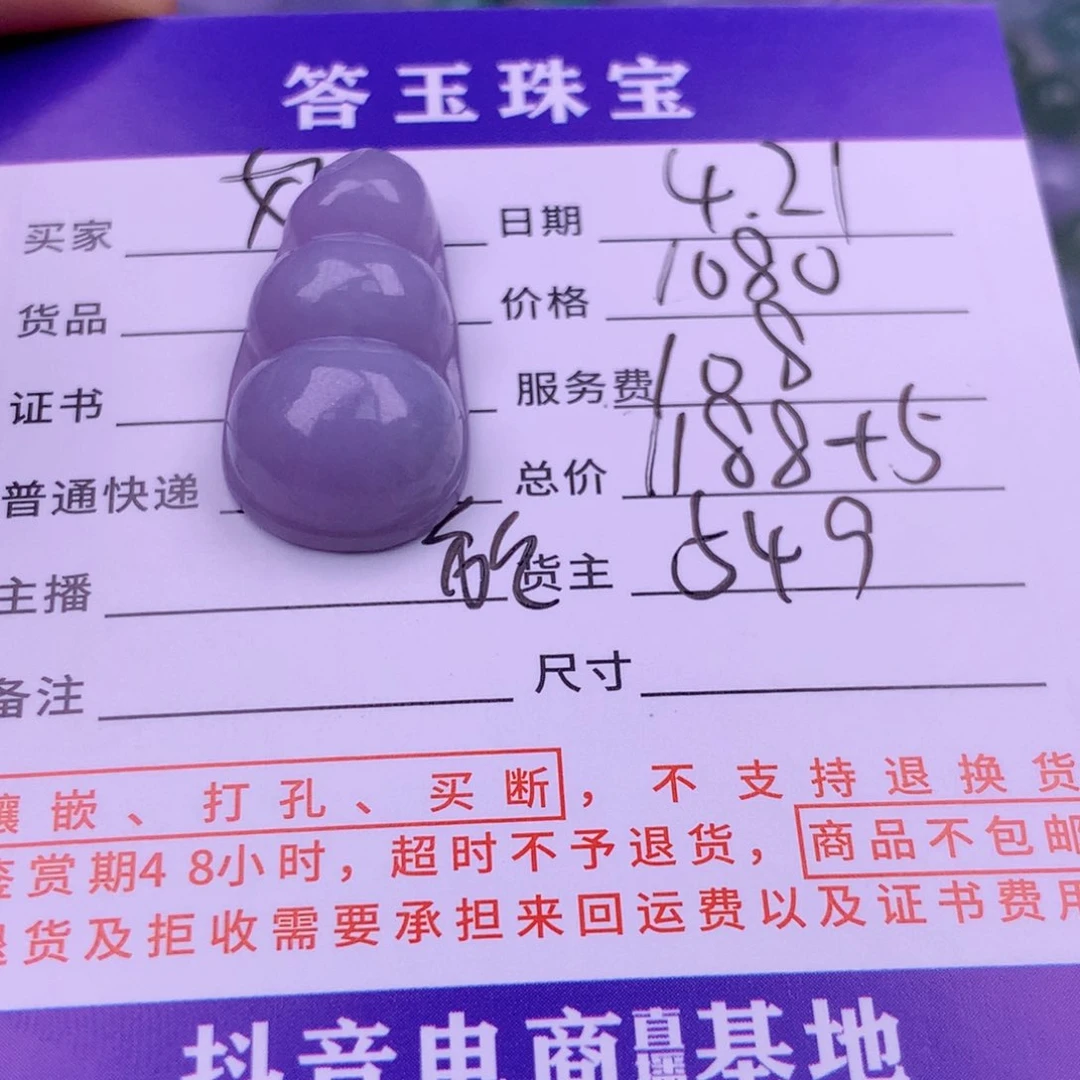 答玉珠宝
买家 日期 4.21
货品 价格 1080
证书 服务费 108
普通快递 总价 1188+5
主播 货主 549
备注 尺寸
镶嵌、打孔、买断，不支持退换货
鉴赏期48小时，超时不予退货，商品不包邮
退货及拒收需要承担来回运费以及证书费用
抖音电商直播基地